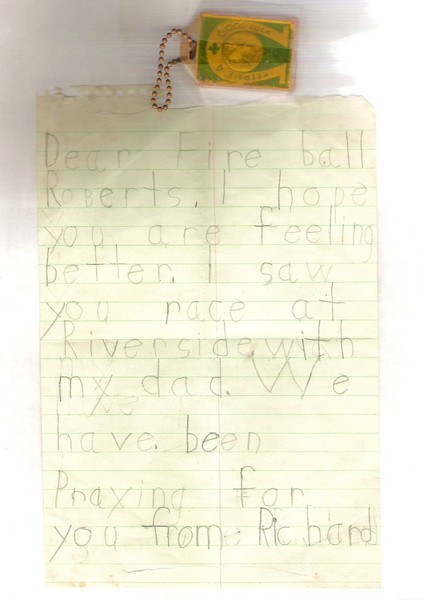 GOOD LUCK
KEEPSIE
Dear Fire ball
Roberts. I hope
you are feeling
better. I saw
you race at
Riverside with
my dad. We
have been
Praying for
you from Richard